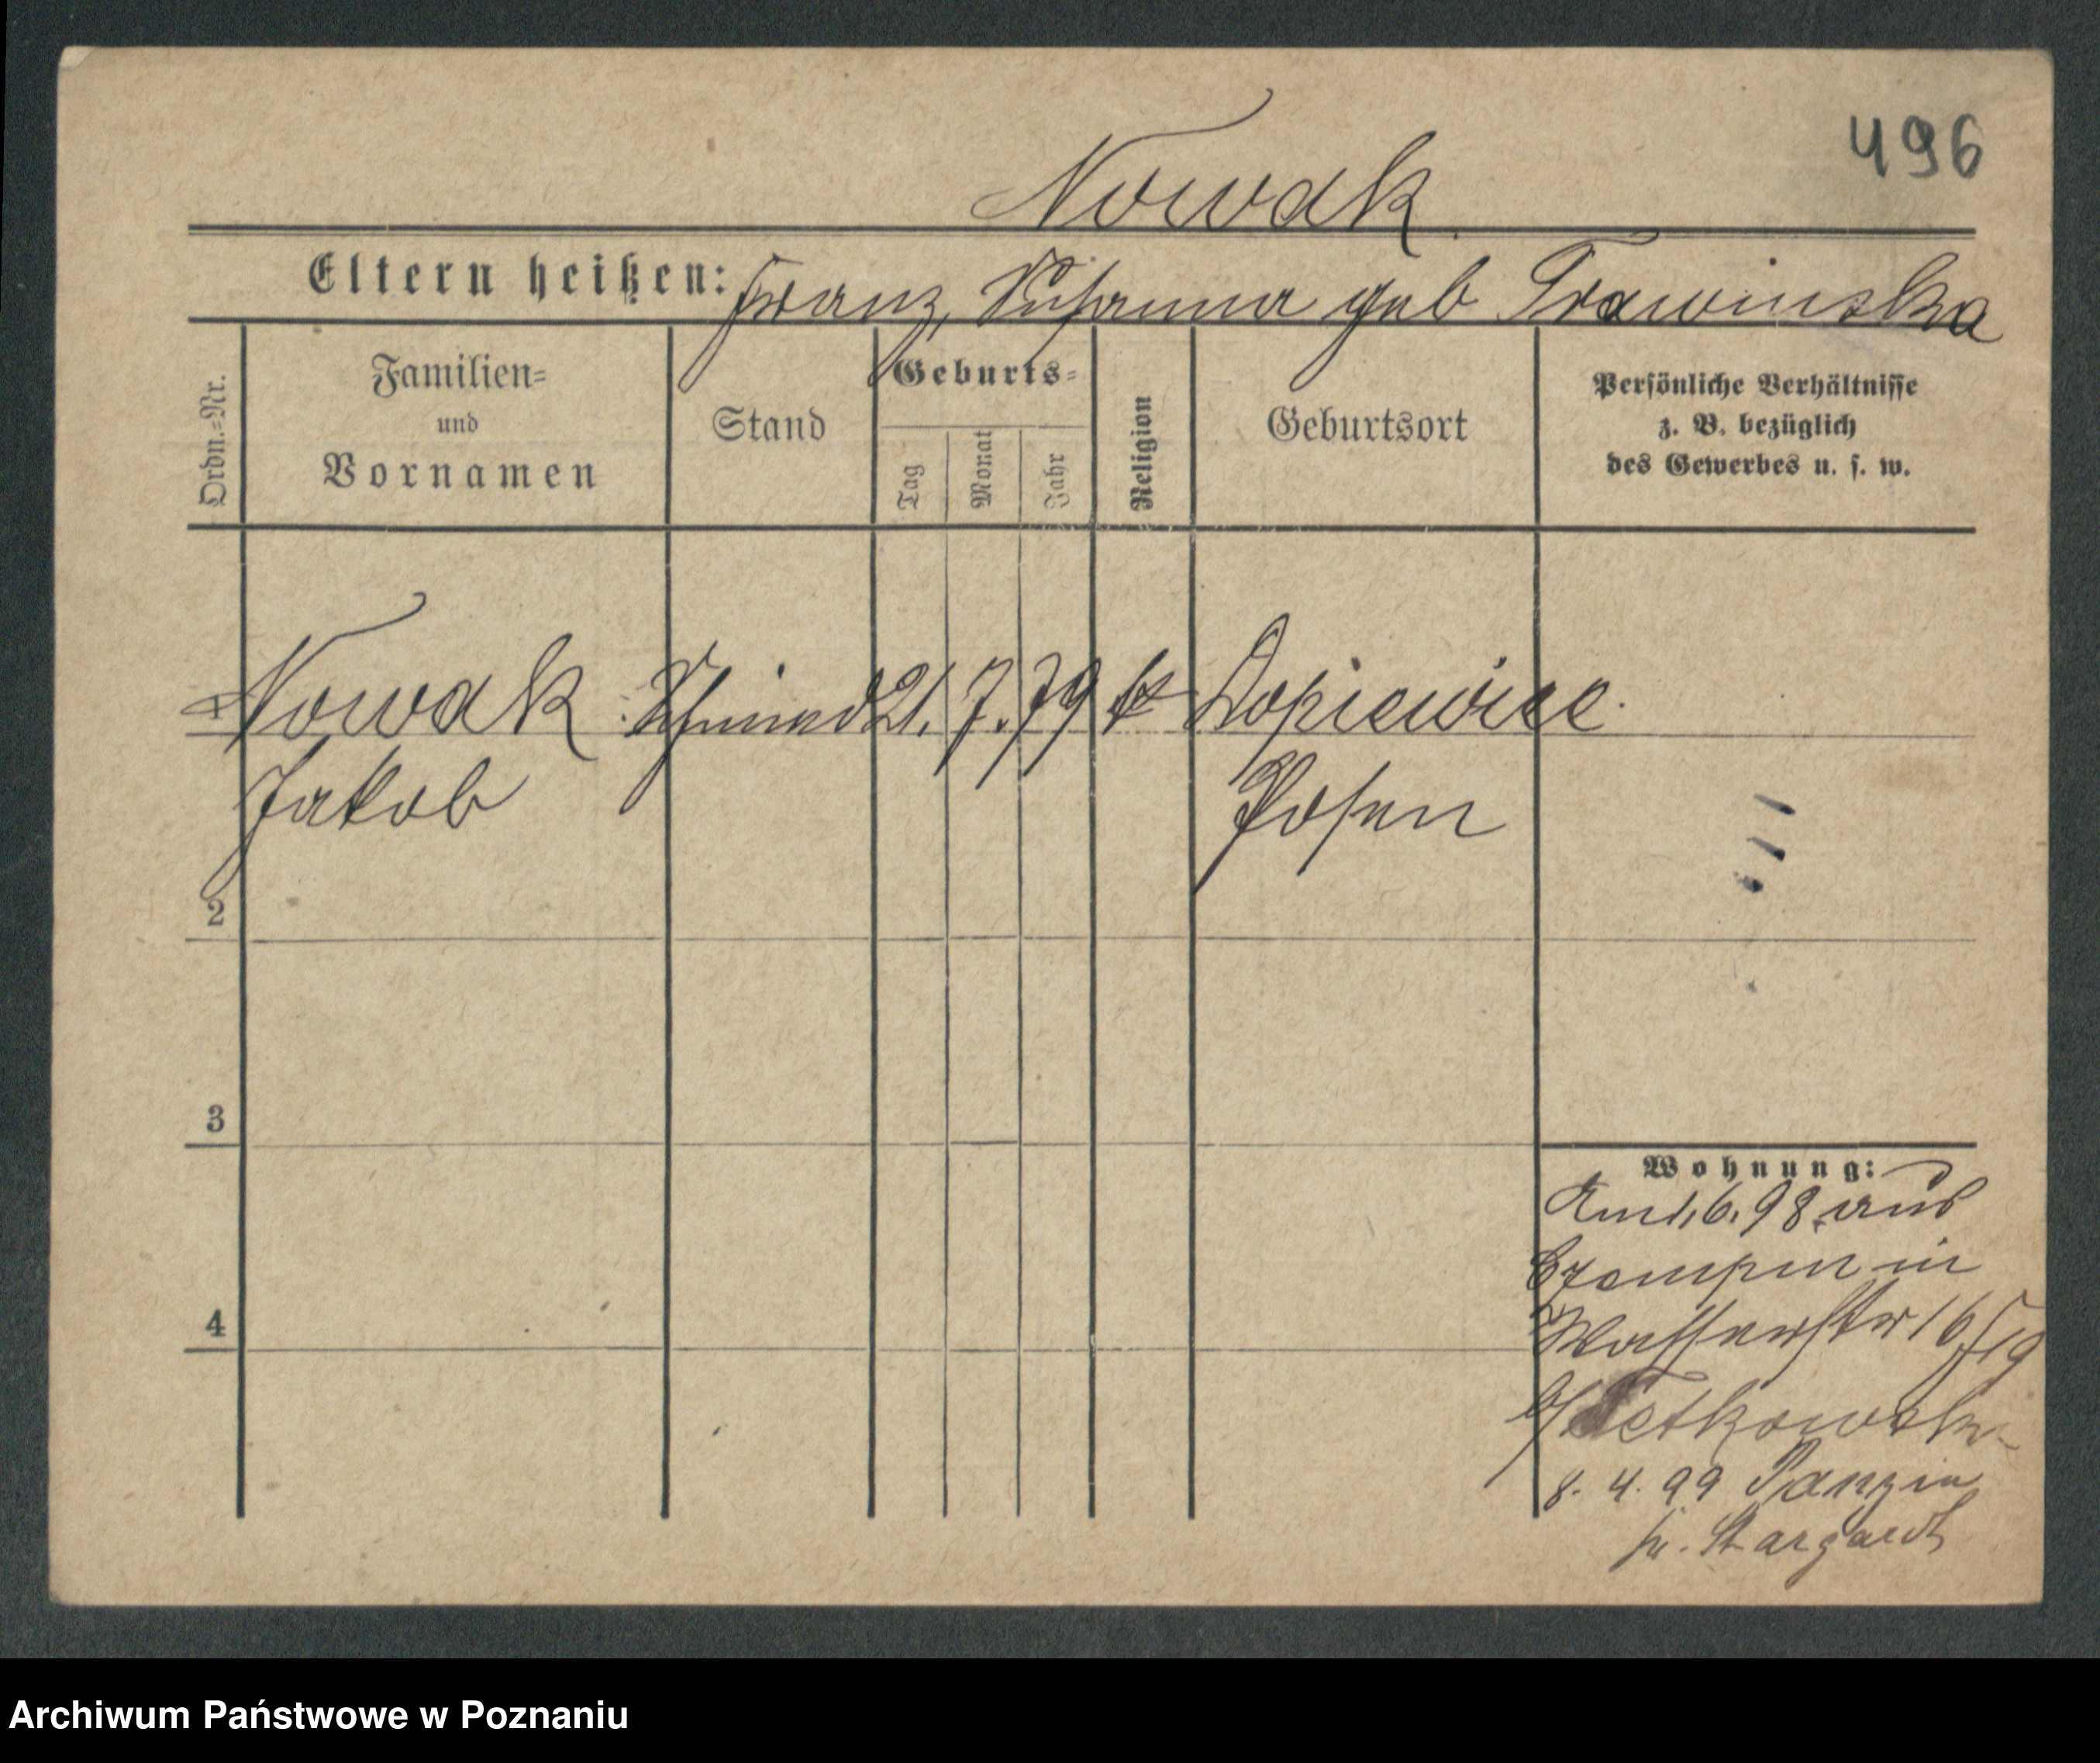 496
Nowak
Eltern heißen: Franz, Susanna geb Trawinska
Ordn.-Nr.
Familien-
und
Vornamen
Stand
Geburts-
Tag
Monat
Jahr
Religion
Geburtsort
Persönliche Verhältnisse
z. B. bezüglich
des Gewerbes u. s. w.
1 Nowak Schmied 21. 7. 79 kt Dopiewiec.
Jakob Posen
2
3
4
Wohnung:
Am 1.6.98 aus
Czempin in
Wasserstr 16/19
b/
8. 4. 99 Panzin
kr. Stargardt
Archiwum Państwowe w Poznaniu